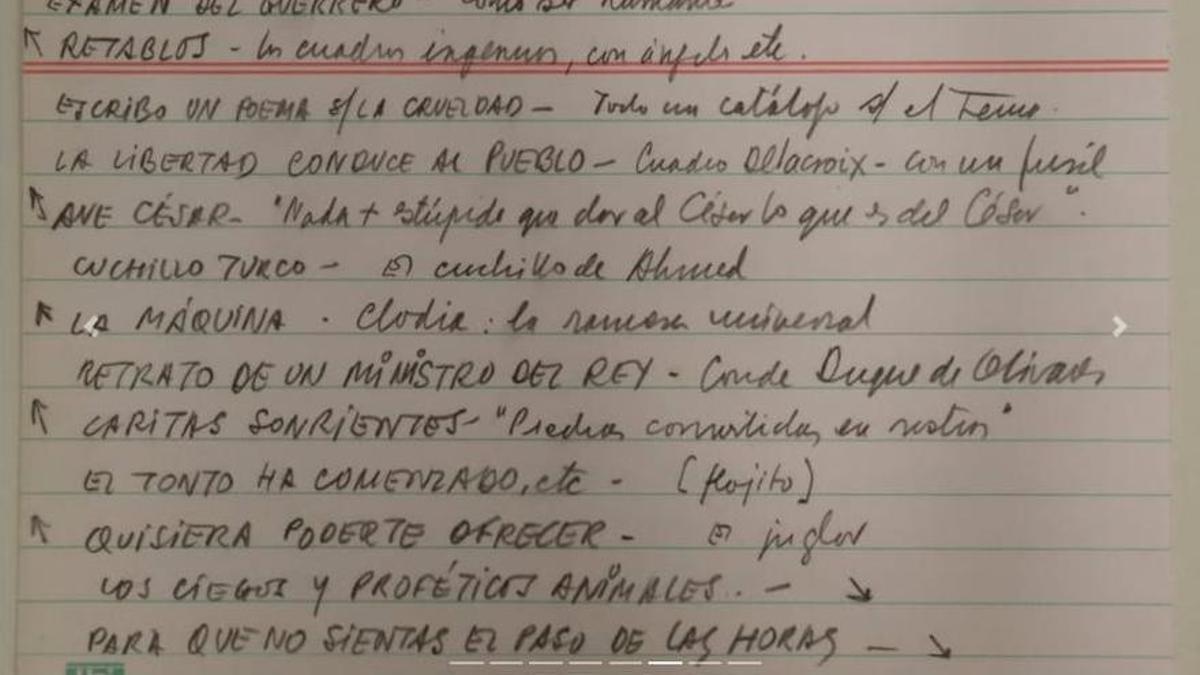 EXAMEN DEL GUERRERO - como ser humano
RETABLOS - los cuadros ingenuos, con ángeles etc.
ESCRIBO UN POEMA s/LA CRUELDAD - Todo un catálogo s/ el Tema.
LA LIBERTAD CONDUCE AL PUEBLO - Cuadro Dellacroix - con un fusil
AVE CÉSAR - "Nada + estúpido que dar al César lo que es del César".
CUCHILLO TURCO - El cuchillo de Ahmed
LA MÁQUINA. Clodia: la ramera universal
RETRATO DE UN MINISTRO DEL REY - Conde Duque de Olivares
CARITAS SONRIENTES - "Piedras convertidas en rostros"
EL TONTO HA COMENZADO, etc - (flojito)
QUISIERA PODERTE OFRECER - El juglar
LOS CIEGOS Y PROFÉTICOS ANIMALES. -
PARA QUE NO SIENTAS EL PASO DE LAS HORAS -